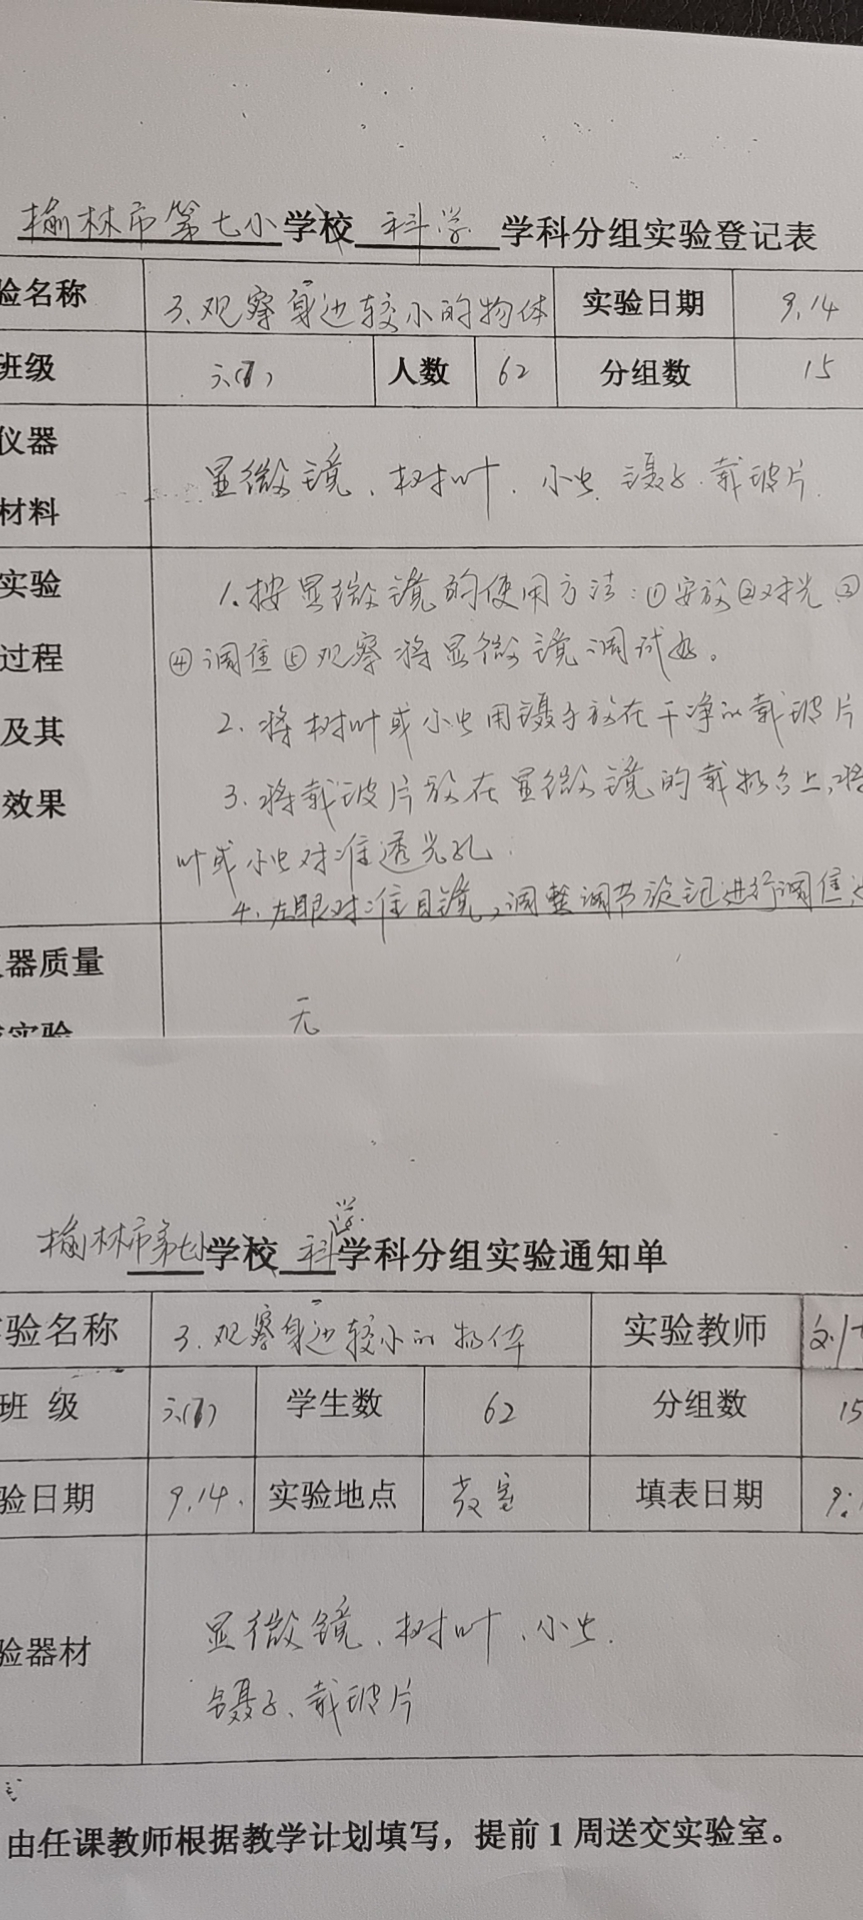 榆林市第七小学校 科学 学科分组实验登记表
验名称 3.观察身边较小的物体 实验日期 9.14
班级 六(7) 人数 62 分组数 15
仪器
材料
显微镜、树叶、小虫、镊子、载玻片
实验
过程
及其
效果
1.按显微镜的使用方法:①安放②对光③
④调焦⑤观察将显微镜调试好。
2.将树叶或小虫用镊子放在干净的载玻片
3.将载玻片放在显微镜的载物台上,将
叶或小虫对准透光孔.
4.左眼对准目镜,调整调节旋钮进行调焦,
器质量
实验
无
榆林市第七小学校 科学 学科分组实验通知单
验名称 3.观察身边较小的物体 实验教师
班 级 六(7) 学生数 62 分组数 15
验日期 9.14. 实验地点 教室 填表日期 9.
验器材
显微镜、树叶、小虫.
镊子、载玻片
由任课教师根据教学计划填写，提前1周送交实验室。